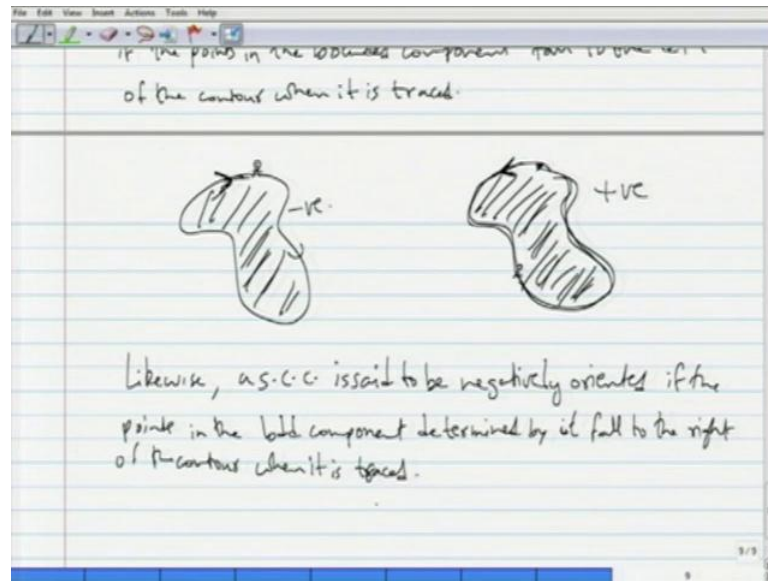 File Edit View Insert Actions Tools Help
if the points in the bounded component fall to the left
of the contour when it is traced.
-ve
+ve
Likewise, a s.c.c. is said to be negatively oriented if the
points in the bdd component determined by it fall to the right
of the contour when it is traced.
3/3
9